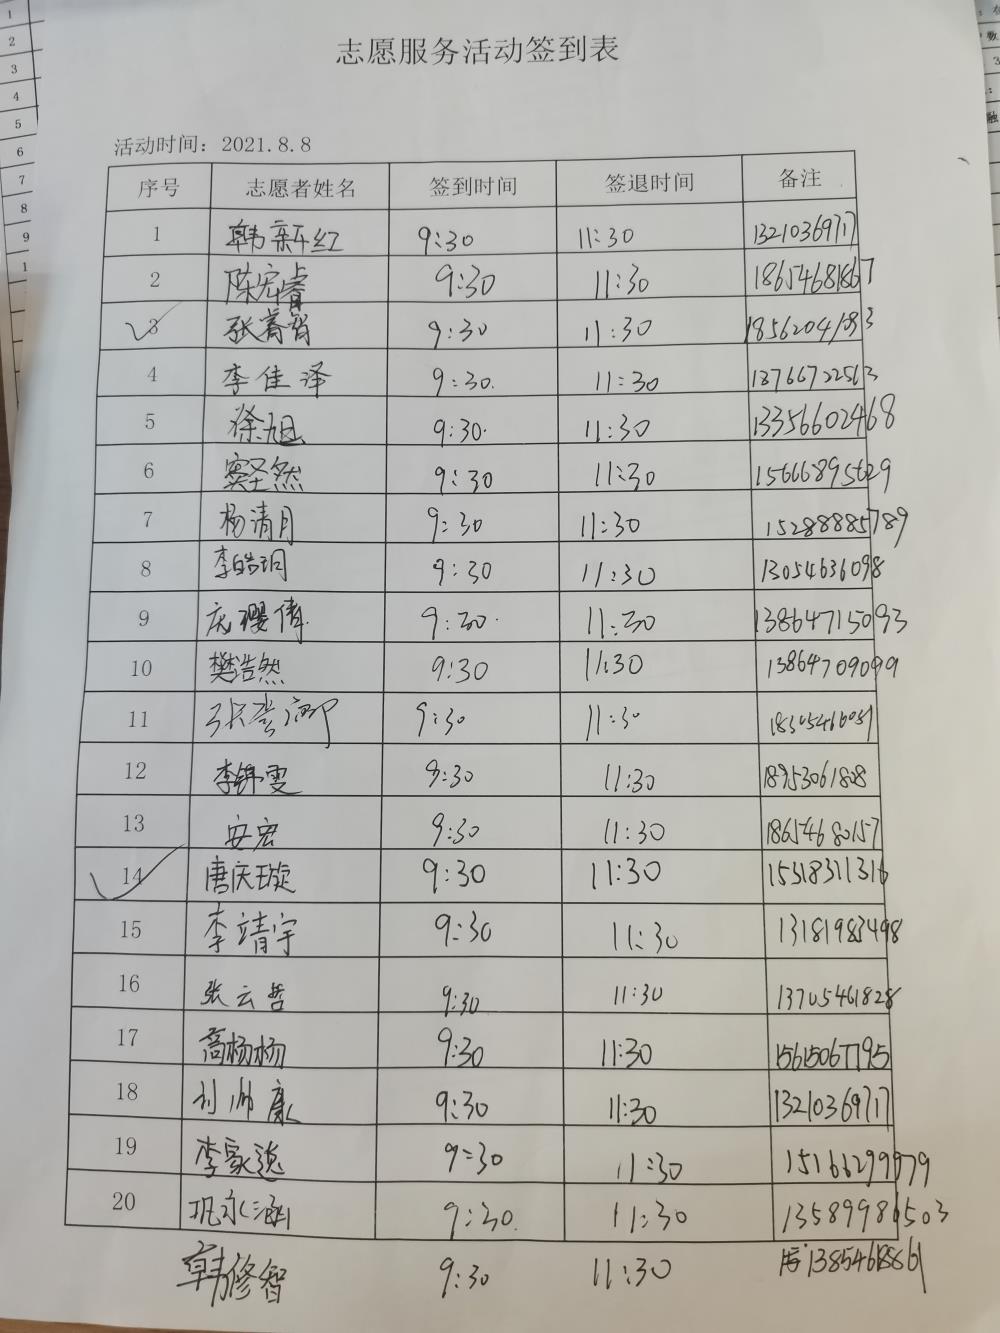 志愿服务活动签到表
活动时间: 2021.8.8
序号 志愿者姓名 签到时间 签退时间 备注
1 韩新红 9:30 11:30 13210369717
2 陈宏睿 9:30 11:30 18654681867
3 张 9:30 11:30 18562041083
4 李佳泽 9:30. 11:30 13766722563
5 徐旭 9:30. 11:30 13356602468
6 窦圣然 9:30 11:30 15666895629
7 杨清月 9:30 11:30 15288885789
8 李皓玥 9:30 11:30 13054636098
9 9:30. 11:30 13864715093
10 樊浩然 9:30 11:30 13864709099
11 张 9:30 11:30
12 李锦雯 9:30 11:30 18953061808
13 安宏 9:30 11:30 18654680157
14 唐庆璇 9:30 11:30 15318311316
15 李靖宇 9:30 11:30 13181983498
16 张云哲 9:30 11:30 13705461828
17 高杨杨 9:30 11:30 15615067795
18 刘帅康 9:30 11:30 13210369717
19 李家逸 9:30 11:30
20 巩永涵 9:30. 11:30
韩修智 9:30 11:30